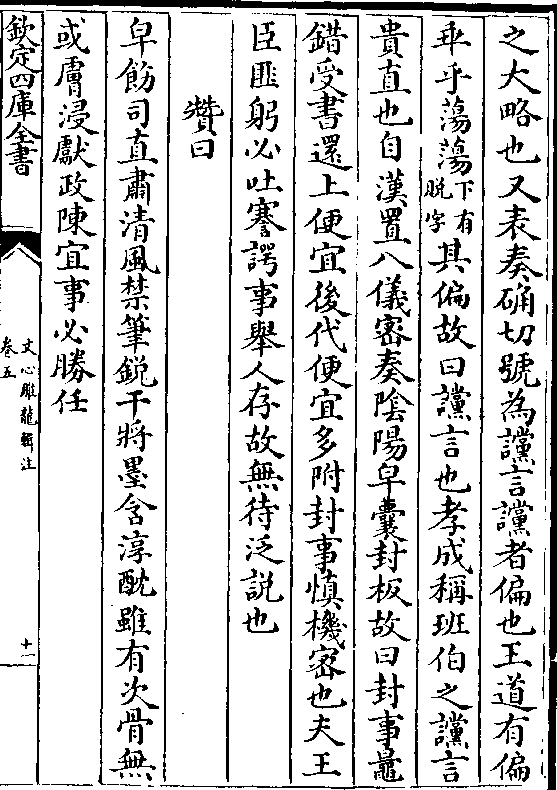 之大略也又表奏确切號為讜言讜者偏也王道有偏
乖乎蕩蕩下有脱字其偏故曰讜言也孝成稱班伯之讜言
貴直也自漢置八儀密奏陰陽皁囊封板故曰封事鼂
錯受書還上便宜後代便宜多附封事慎機密也夫王
臣匪躬必吐謇諤事舉人存故無待泛説也
贊曰
皁飭司直肅清風禁筆鋭干將墨含淳酖雖有次骨無
或膚浸獻政陳宜事必勝任
欽定四庫全書
文心雕龍輯注
卷五
十一